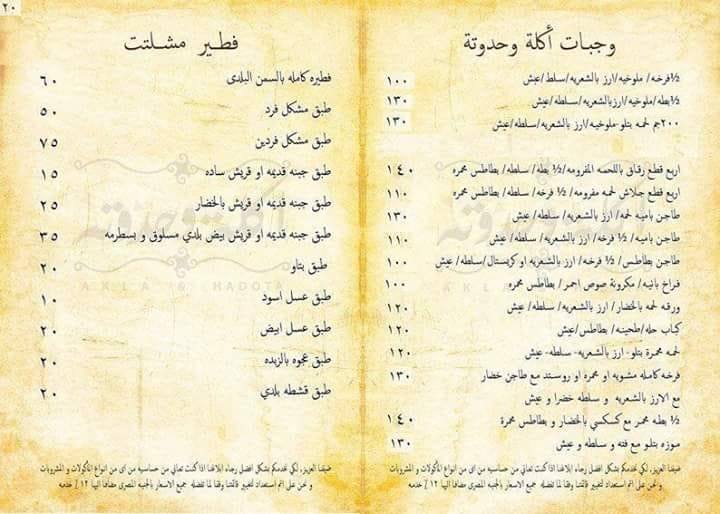 ٢٠
وجبات أكلة وحدوتة
½ فرخه/ ملوخيه/ارز بالشعريه/سلطه/عيش ١٠٠
½بطه/ملوخيه/ارزبالشعريه/سلطه/عيش ١٣٠
٢٠٠جم لحمه بتلو-ملوخيه/ارز بالشعريه/سلطه/عيش ١٣٠
اربع قطع رقاق باللحمه المفرومه/½ بطه/ سلطه/ بطاطس محمره ١٤٠
اربع قطع جلاش لحمه مفرومه/ ½ فرخه/ سلطه/ بطاطس محمره ١١٠
طاجن باميه لحمه/ ارز بالشعريه/ سلطه/ عيش ١٣٠
طاجن باميه/ ½ فرخه/ ارز بالشعريه/ سلطه/ عيش ١١٠
طاجن بطاطس/ ½ فرخه/ ارز بالشعريه او كريستال/سلطه/ عيش ١٠٠
فراخ بانيه/ مكرونة صوص احمر/ بطاطس محمره ١٠٠
ورقه لحمه بالخضار/ ارز بالشعريه/ سلطه/ عيش ١٢٠
كباب حله/طحينه/ بطاطس/عيش ١٢٠
لحمه محمرة بتلو- ارز بالشعريه- سلطه- عيش ١٢٠
فرخه كامله مشويه او محمره او روستد مع طاجن خضار ١٣٠
مع الارز بالشعريه و سلطه خضرا و عيش
½ بطه محمر مع كسكسي بالخضار و بطاطس محمرة ١٤٠
موزه بتلو مع فته و سلطه و عيش ١٣٠
ضيفنا العزيز، لكي نخدمكم بشكل افضل رجاء ابلاغنا اذا كنت تعاني من حساسيه من اى من انواع المأكولات و المشروبات
و نحن على اتم استعداد لتغيير قائمتنا وفقا لما تفضله جميع الاسعار بالجنيه المصرى مضافا اليها ١٢ ٪ خدمه
فطير مشلتت
فطيره كامله بالسمن البلدى ٦٠
طبق مشكل فرد ٥٠
طبق مشكل فردين ٧٥
طبق جبنه قديمه او قريش ساده ١٥
طبق جبنه قديمه او قريش بالخضار ٢٥
طبق جبنه قديمه او قريش بيض بلدي مسلوق و بسطرمه ٣٥
طبق بتاو ٢٠
طبق عسل اسود ١٠
طبق عسل ابيض ٢٠
طبق عجوه بالزبده ٢٠
طبق قشطه بلدي ٢٠
ضيفنا العزيز، لكي نخدمكم بشكل افضل رجاء ابلاغنا اذا كنت تعاني من حساسيه من اى من انواع المأكولات و المشروبات
و نحن على اتم استعداد لتغيير قائمتنا وفقا لما تفضله جميع الاسعار بالجنيه المصرى مضافا اليها ١٢ ٪ خدمه
أكلة وحدوتة
AKLA & HADOTA